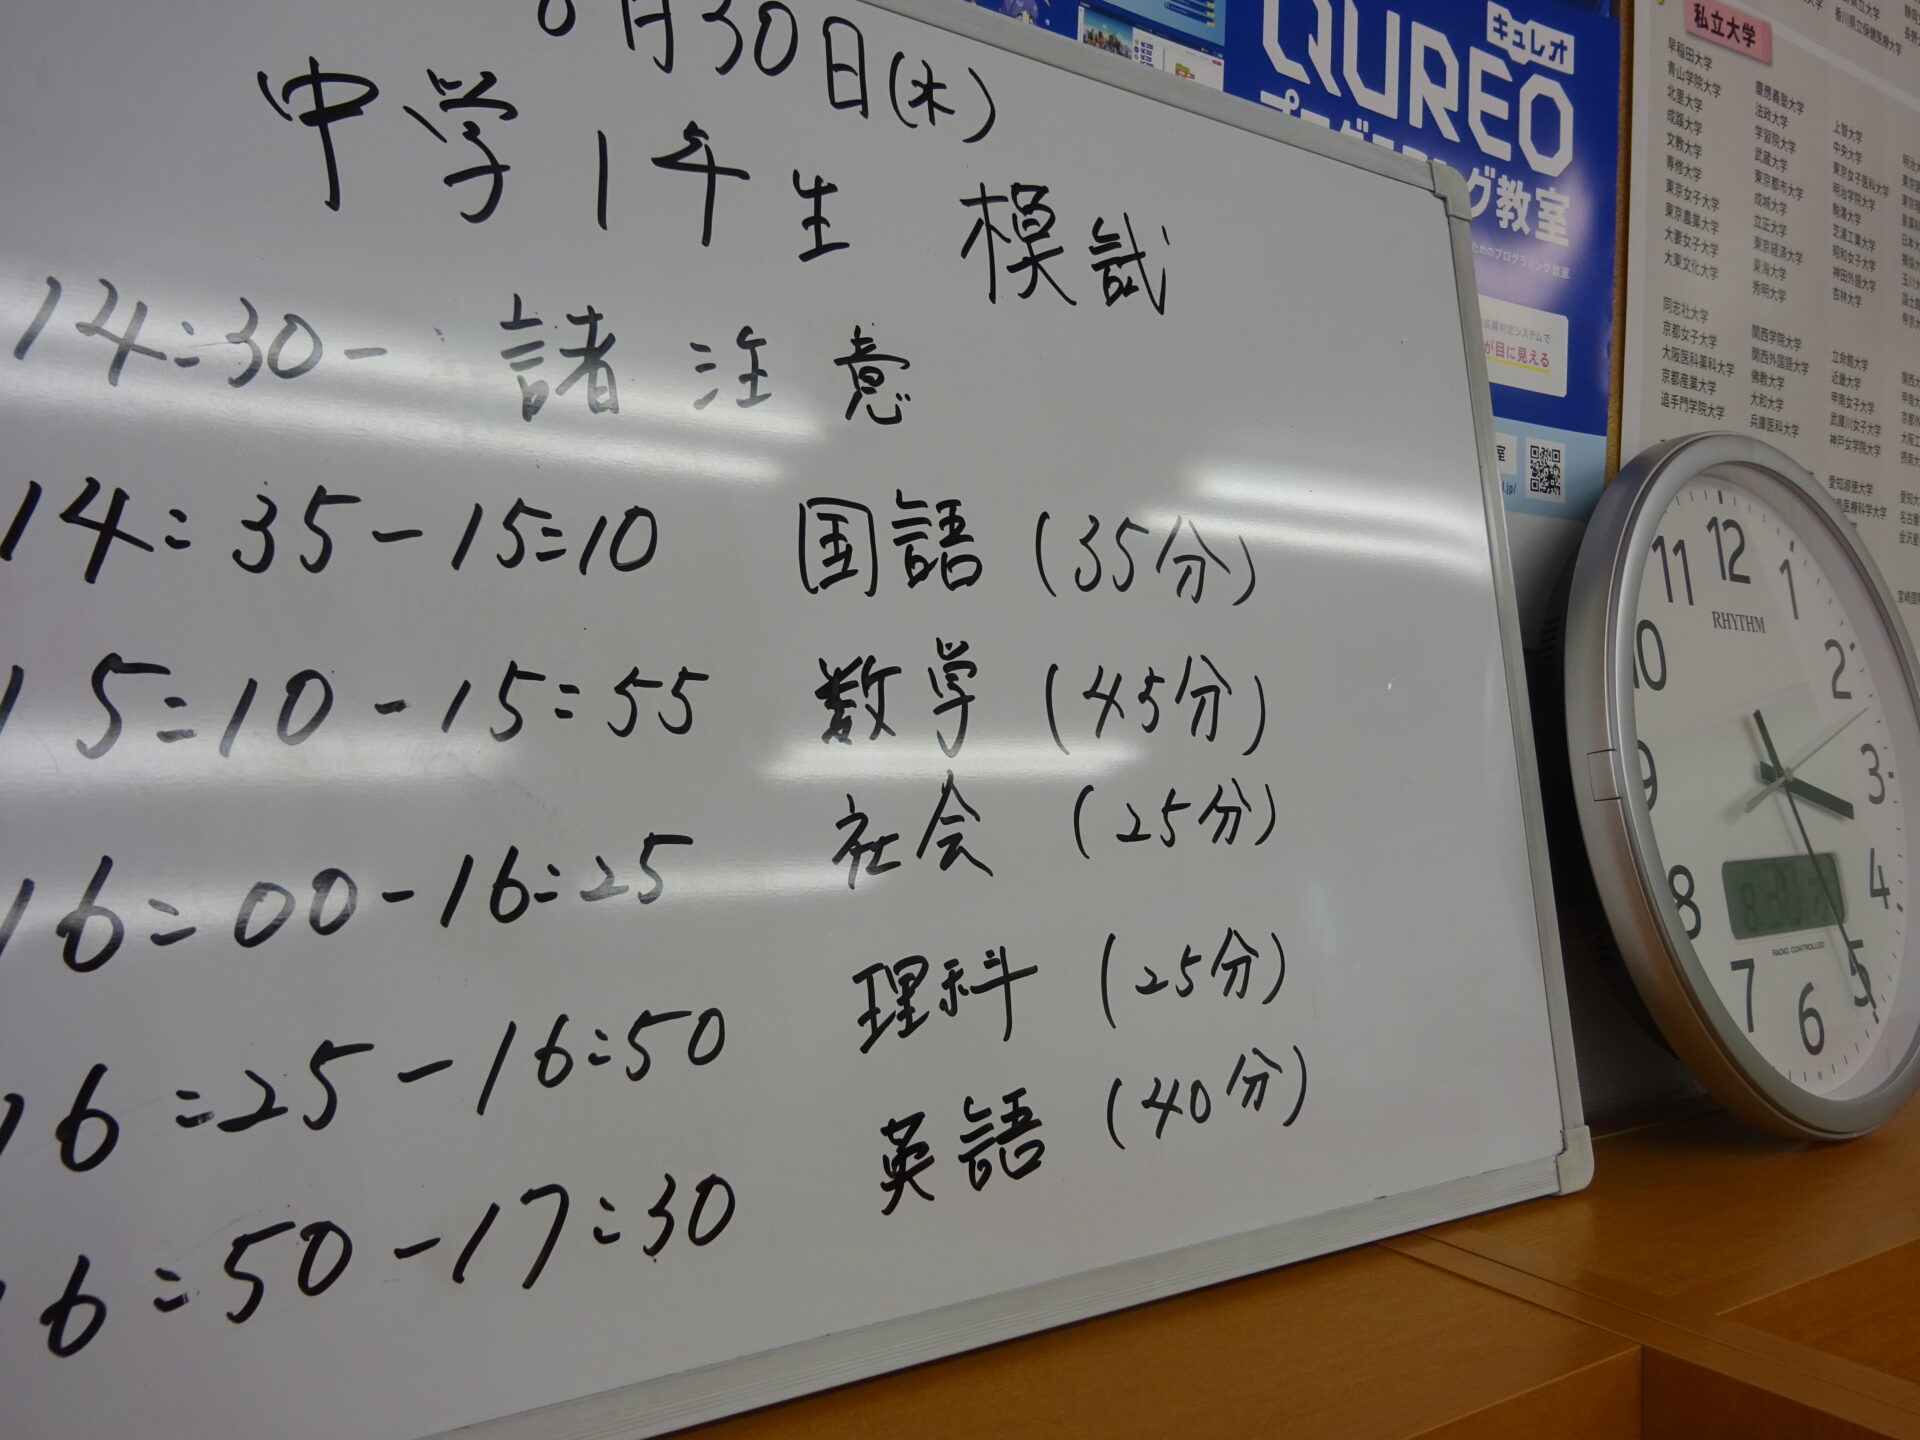 8月30日(木)
中学1年生 模試
14:30- 諸注意
14:35-15:10 国語(35分)
15:10-15:55 数学(45分)
16:00-16:25 社会(25分)
16:25-16:50 理科(25分)
16:50-17:30 英語(40分)
キュレオ
QUREO
プログラミング教室
ためのプログラミング教室
成績判定システムで
が目に見える
私立大学
早稲田大学
青山学院大学 慶應義塾大学
北里大学 法政大学 上智大学
成蹊大学 学習院大学 中央大学
文教大学 武蔵大学 東京女子医科大学
専修大学 東京都市大学 明治学院大学
東京女子大学 成城大学 駒澤大学
東京農業大学 立正大学 芝浦工業大学
大妻女子大学 東京経済大学 昭和女子大学
大東文化大学 東海大学 神田外語大学
秀明大学 杏林大学
同志社大学 関西学院大学 立命館大学
京都女子大学 関西外国語大学 近畿大学
大阪医科薬科大学 佛教大学 甲南女子大学
京都産業大学 大和大学 武庫川女子大学
追手門学院大学 兵庫医科大学 神戸女学院大学
愛知淑徳大学
12 1 2 3 4 5 6 7 8 9 10 11
RHYTHM
RADIO CONTROLLED